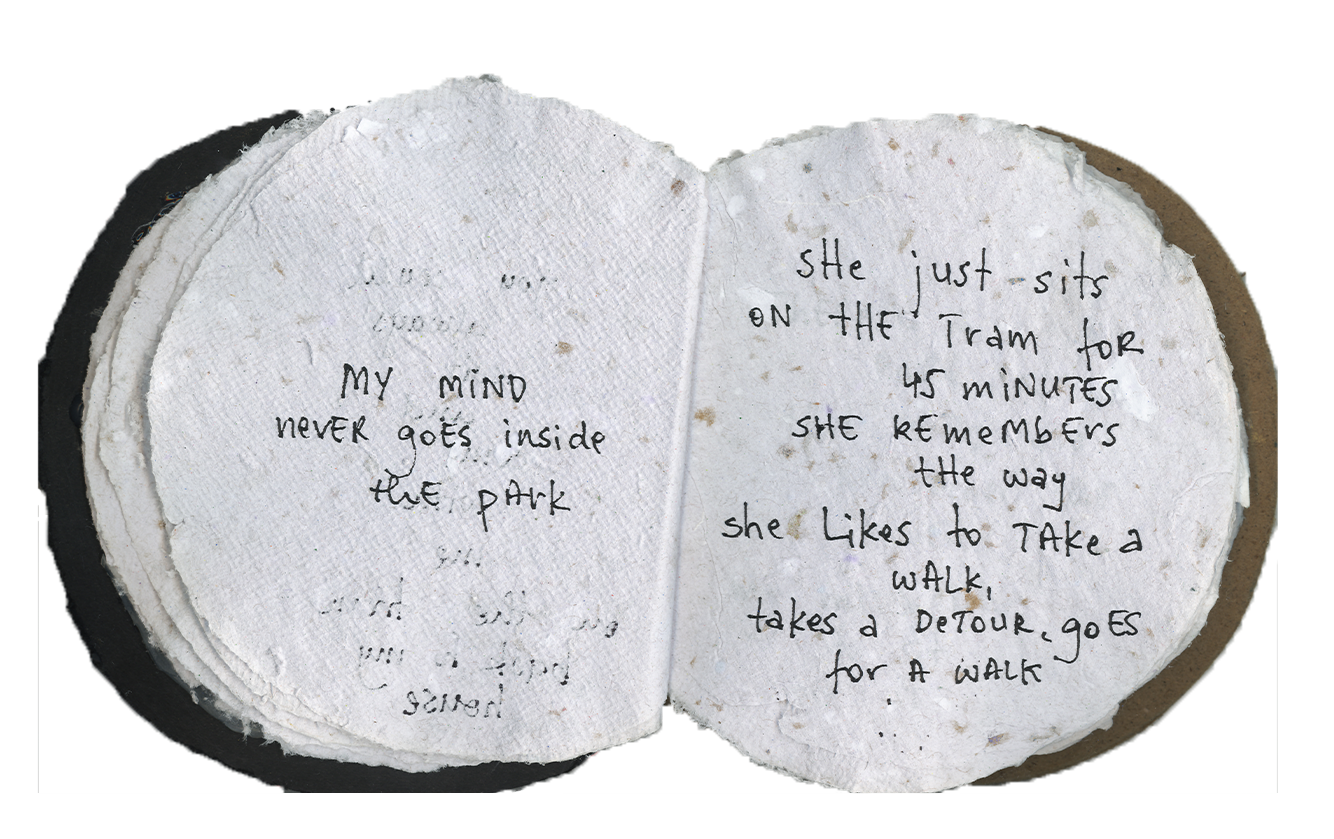 MY MiND
nevER goEs inside
thE pArk
sHe just - sits
ON tHE Tram foR
45 miNUTES
SHE REmeMbErs
tHe way
she Likes to TAke a
WALK,
takes a DeTOUR, goES
for A WALK
house